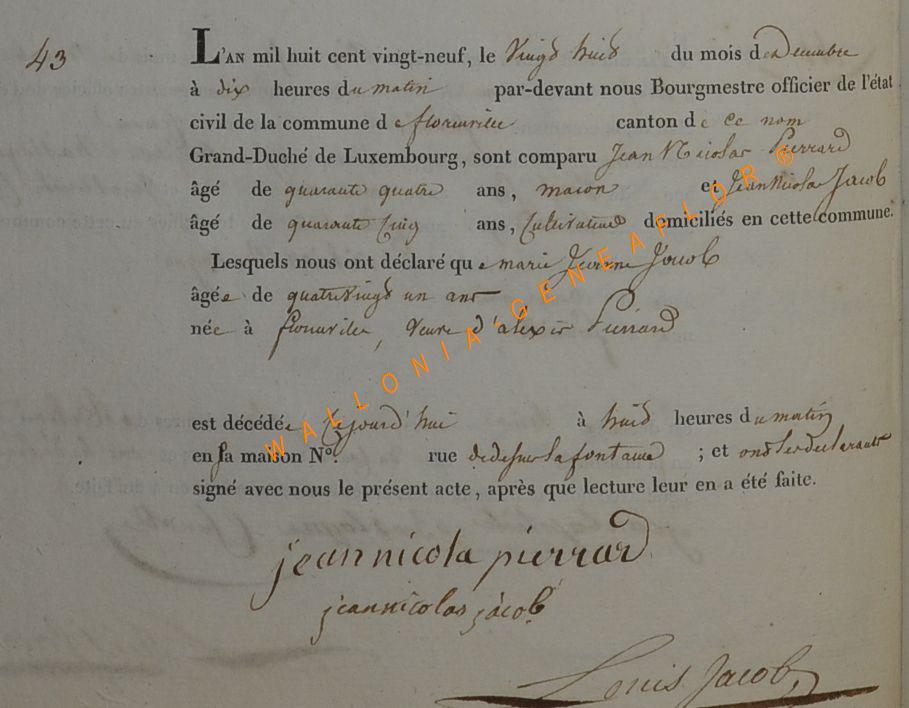 43
L'AN mil huit cent vingt-neuf, le Vingt huit du mois de decembre
à dix heures du matin par-devant nous Bourgmestre officier de l'état
civil de la commune de florenville canton de ce nom
Grand-Duché de Luxembourg, sont comparu Jean Nicolas Pierrard
âgé de quarante quatre ans, macon et Jean Nicolas Jacob
âgé de quarante Cinq ans, Cultivateur domiciliés en cette commune.
Lesquels nous ont déclaré que marie Jeanne Jacob
âgée de quatrevingt un ans
née à florenville, veuve d'aléxis Pierrard
est décédée Cejourd'hui à huit heures du matin
en sa maison N°. rue dedessur la fontaine ; et ont les declarants
signé avec nous le présent acte, après que lecture leur en a été faite.
jean nicola pierrard
jean nicolas jacob
Louis Jacob
WALLONIA-GENEAFLOR®